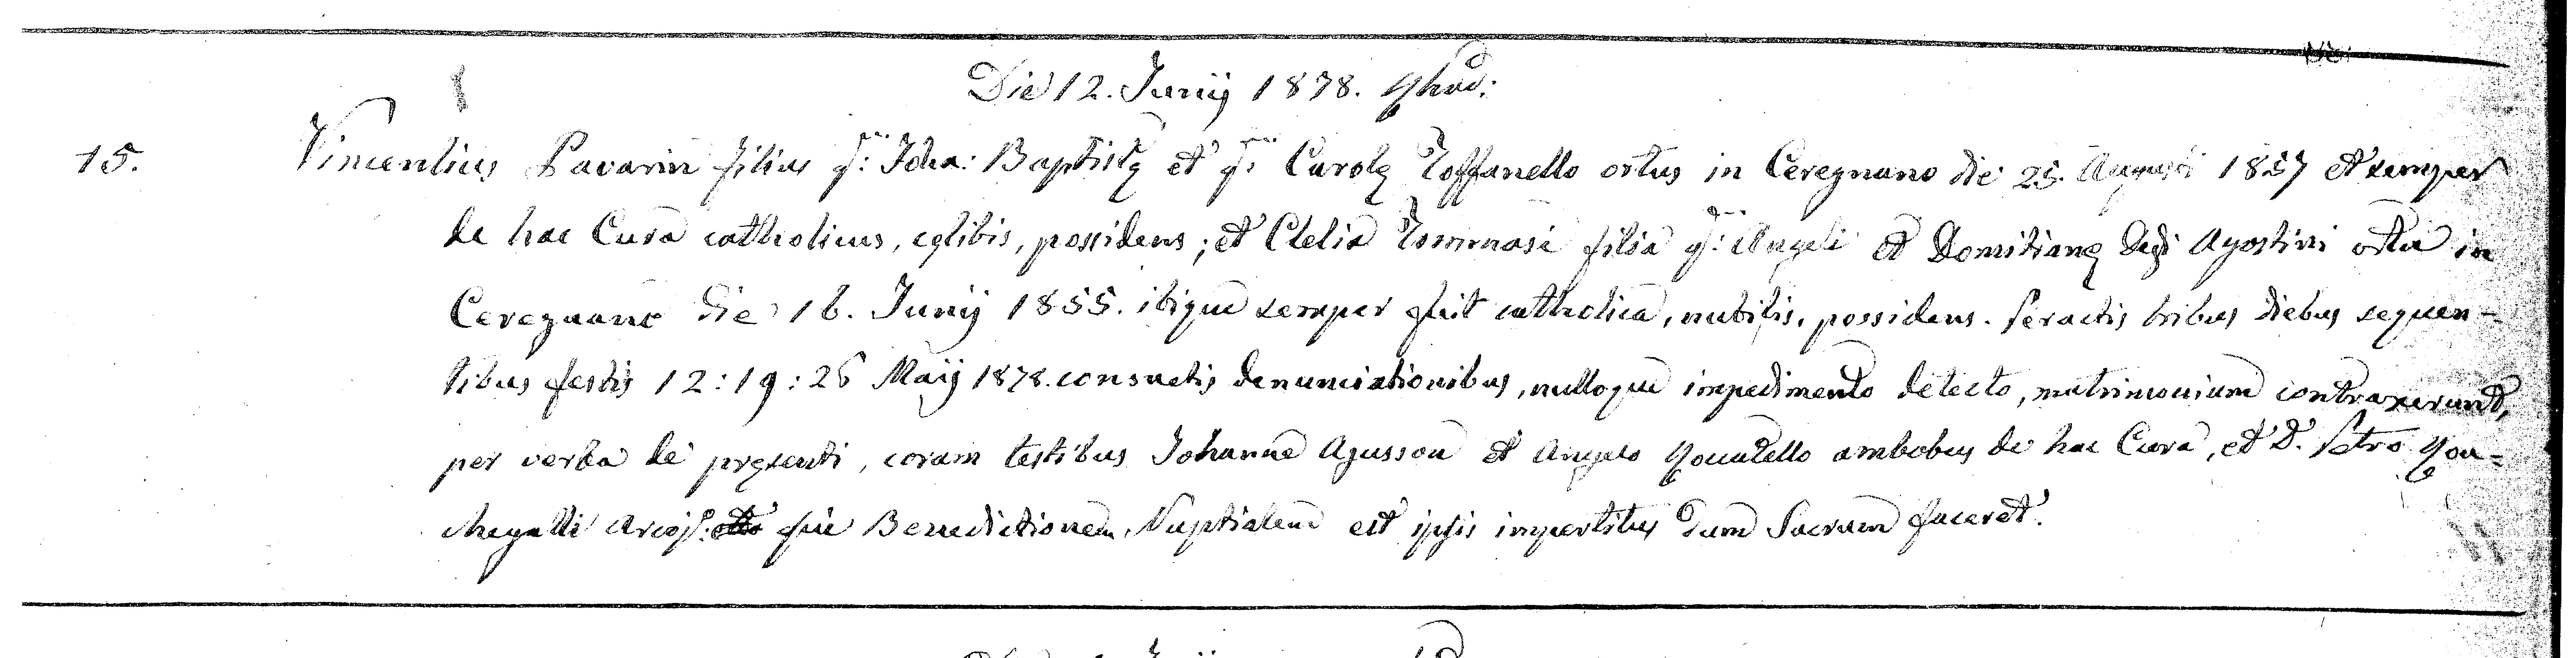 Die 12. Junij 1878.
15. Vincentius Pavarin filius q: Joha: Baptistę et q: Carolę Toffanello ortus in Ceregnano die 25. Augusti 1857 et semper
de hac Cura catholicus, cęlibis, possidens; et Clelia Tommasi filia q: Angeli et Domitianę Degi Agostini orta in
Ceregnano die 16. Junij 1855. ibique semper fuit catholica, nubilis, possidens. Peractis tribus diebus sequen-
tibus festis 12:19:26 Maij 1878. consuetis denunciationibus, nulloque impedimento detecto, matrimonium contraxerunt,
per verba de pręsenti, coram testibus Johanne Agusson et Angelo ambobus de hac Cura, et D. Petro
Arcip: qui Benedictionem Nuptialem est ipsis impertitus dum Sacrum faceret.